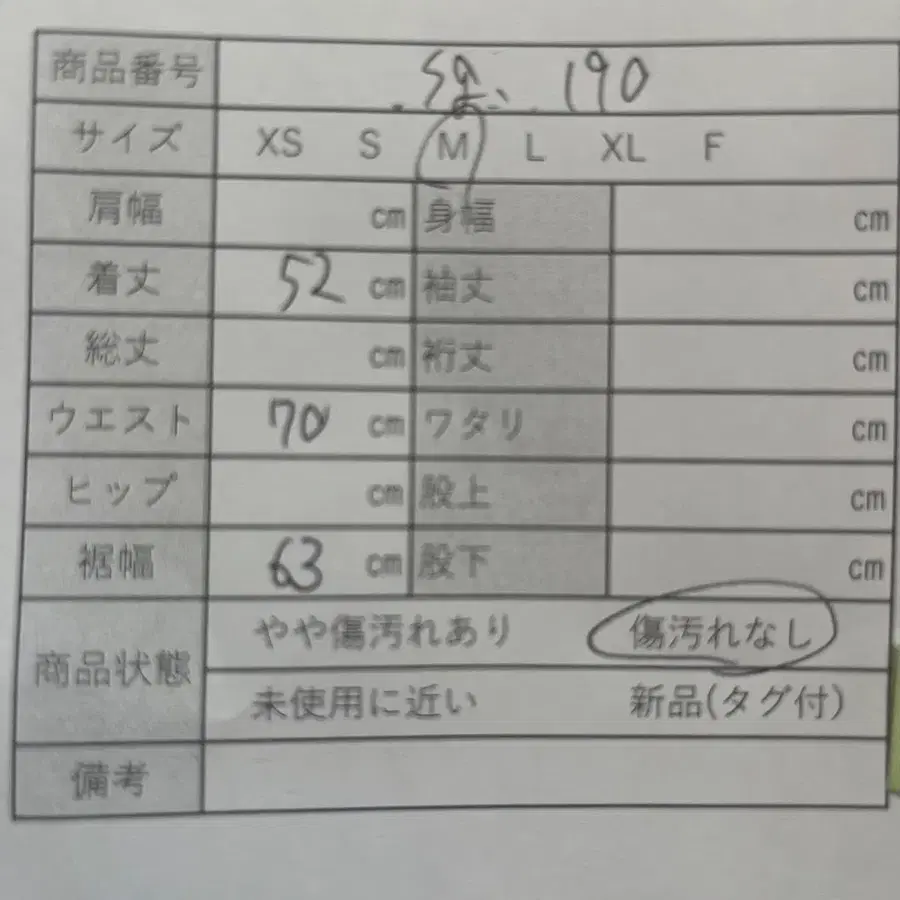 商品番号 190
サイズ XS S M L XL F
肩幅 cm 身幅 cm
着丈 52 cm 袖丈 cm
総丈 cm 裄丈 cm
ウエスト 70 cm ワタリ cm
ヒップ cm 股上 cm
裾幅 63 cm 股下 cm
商品状態 やや傷汚れあり 傷汚れなし
未使用に近い 新品(タグ付)
備考